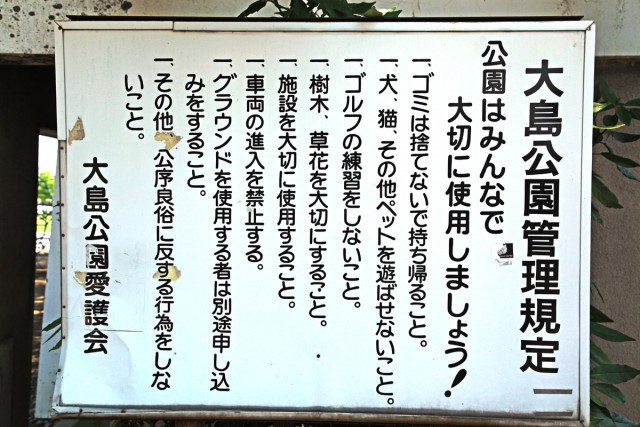 大島公園管理規定
公園はみんなで
大切に使用しましょう!
一、ゴミは捨てないで持ち帰ること。
一、犬、猫、その他ペットを遊ばせないこと。
一、ゴルフの練習をしないこと。
一、樹木、草花を大切にすること。
一、施設を大切に使用すること。
一、車両の進入を禁止する。
一、グラウンドを使用する者は別途申し込
みをすること。
一、その他、公序良俗に反する行為をしな
いこと。
大島公園愛護会